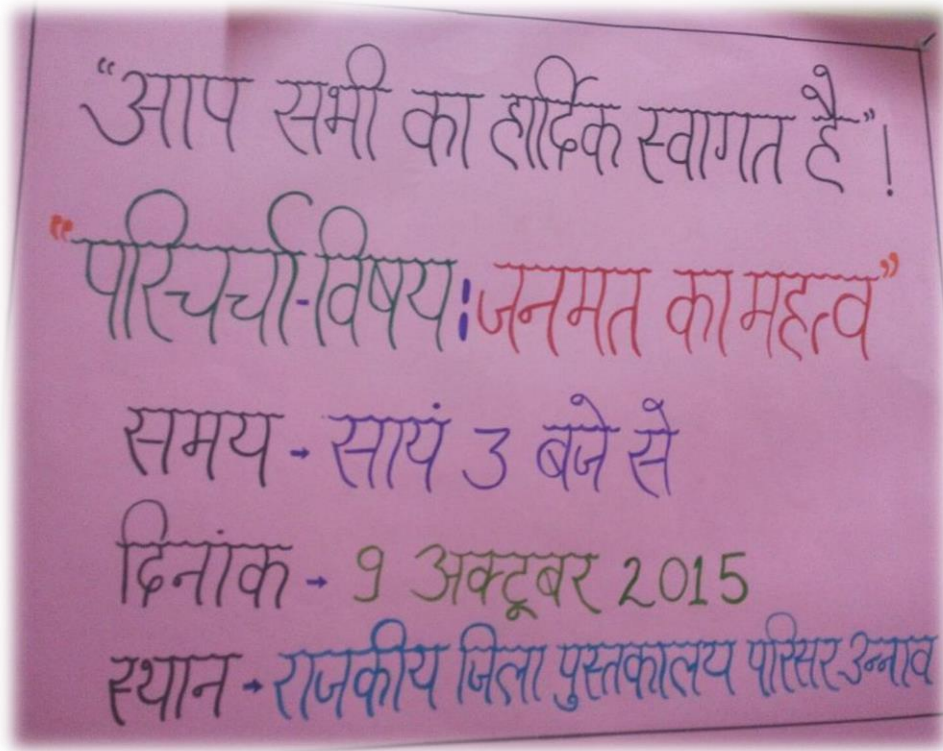 “आप सभी का हार्दिक स्वागत है”!
“परिचर्चा-विषय: जनमत का महत्व”
समय - सायं 3 बजे से
दिनांक - 9 अक्टूबर 2015
स्थान - राजकीय जिला पुस्तकालय परिसर उन्नाव